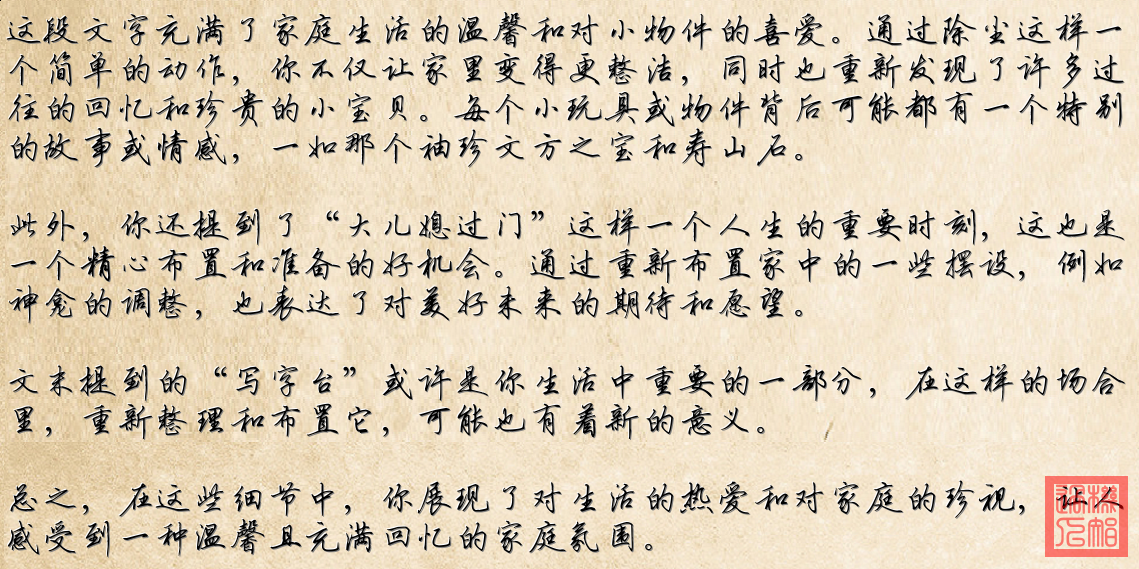 这段文字充满了家庭生活的温馨和对小物件的喜爱。通过除尘这样一
个简单的动作，你不仅让家里变得更整洁，同时也重新发现了许多过
往的回忆和珍贵的小宝贝。每个小玩具或物件背后可能都有一个特别
的故事或情感，一如那个袖珍文方之宝和寿山石。
此外，你还提到了“大儿媳过门”这样一个人生的重要时刻，这也是
一个精心布置和准备的好机会。通过重新布置家中的一些摆设，例如
神龛的调整，也表达了对美好未来的期待和愿望。
文末提到的“写字台”或许是你生活中重要的一部分，在这样的场合
里，重新整理和布置它，可能也有着新的意义。
总之，在这些细节中，你展现了对生活的热爱和对家庭的珍视，让人
感受到一种温馨且充满回忆的家庭氛围。